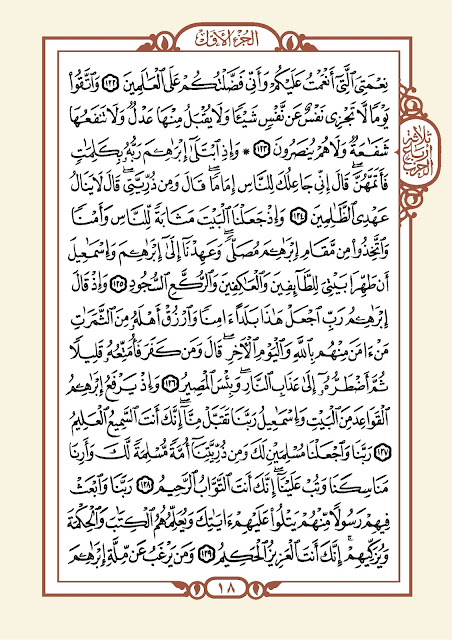 الجزء الأول
نِعْمَتِيَ ٱلَّتِىٓ أَنْعَمْتُ عَلَيْكُمْ وَأَنِّى فَضَّلْتُكُمْ عَلَى ٱلْعَـٰلَمِينَ ١٢٢ وَٱتَّقُوا۟
يَوْمًا لَّا تَجْزِى نَفْسٌ عَن نَّفْسٍ شَيْـًٔا وَلَا يُقْبَلُ مِنْهَا عَدْلٌ وَلَا تَنفَعُهَا
شَفَـٰعَةٌ وَلَا هُمْ يُنصَرُونَ ١٢٣ * وَإِذِ ٱبْتَلَىٰٓ إِبْرَٰهِـۧمَ رَبُّهُۥ بِكَلِمَـٰتٍ
فَأَتَمَّهُنَّ ۖ قَالَ إِنِّى جَاعِلُكَ لِلنَّاسِ إِمَامًا ۖ قَالَ وَمِن ذُرِّيَّتِى ۖ قَالَ لَا يَنَالُ
عَهْدِى ٱلظَّـٰلِمِينَ ١٢٤ وَإِذْ جَعَلْنَا ٱلْبَيْتَ مَثَابَةً لِّلنَّاسِ وَأَمْنًا
وَٱتَّخِذُوا۟ مِن مَّقَامِ إِبْرَٰهِـۧمَ مُصَلًّى ۖ وَعَهِدْنَآ إِلَىٰٓ إِبْرَٰهِـۧمَ وَإِسْمَـٰعِيلَ
أَن طَهِّرَا بَيْتِىَ لِلطَّآئِفِينَ وَٱلْعَـٰكِفِينَ وَٱلرُّكَّعِ ٱلسُّجُودِ ١٢٥ وَإِذْ قَالَ
إِبْرَٰهِـۧمُ رَبِّ ٱجْعَلْ هَـٰذَا بَلَدًا ءَامِنًا وَٱرْزُقْ أَهْلَهُۥ مِنَ ٱلثَّمَرَٰتِ
مَنْ ءَامَنَ مِنْهُم بِٱللَّهِ وَٱلْيَوْمِ ٱلْـَٔاخِرِ ۖ قَالَ وَمَن كَفَرَ فَأُمَتِّعُهُۥ قَلِيلًا
ثُمَّ أَضْطَرُّهُۥٓ إِلَىٰ عَذَابِ ٱلنَّارِ ۖ وَبِئْسَ ٱلْمَصِيرُ ١٢٦ وَإِذْ يَرْفَعُ إِبْرَٰهِـۧمُ
ٱلْقَوَاعِدَ مِنَ ٱلْبَيْتِ وَإِسْمَـٰعِيلُ رَبَّنَا تَقَبَّلْ مِنَّآ ۖ إِنَّكَ أَنتَ ٱلسَّمِيعُ ٱلْعَلِيمُ
١٢٧ رَبَّنَا وَٱجْعَلْنَا مُسْلِمَيْنِ لَكَ وَمِن ذُرِّيَّتِنَآ أُمَّةً مُّسْلِمَةً لَّكَ وَأَرِنَا
مَنَاسِكَنَا وَتُبْ عَلَيْنَآ ۖ إِنَّكَ أَنتَ ٱلتَّوَّابُ ٱلرَّحِيمُ ١٢٨ رَبَّنَا وَٱبْعَثْ
فِيهِمْ رَسُولًا مِّنْهُمْ يَتْلُوا۟ عَلَيْهِمْ ءَايَـٰتِكَ وَيُعَلِّمُهُمُ ٱلْكِتَـٰبَ وَٱلْحِكْمَةَ
وَيُزَكِّيهِمْ ۚ إِنَّكَ أَنتَ ٱلْعَزِيزُ ٱلْحَكِيمُ ١٢٩ وَمَن يَرْغَبُ عَن مِّلَّةِ إِبْرَٰهِـۧمَ
ثلاثة
أرباع
الحزب
١٨